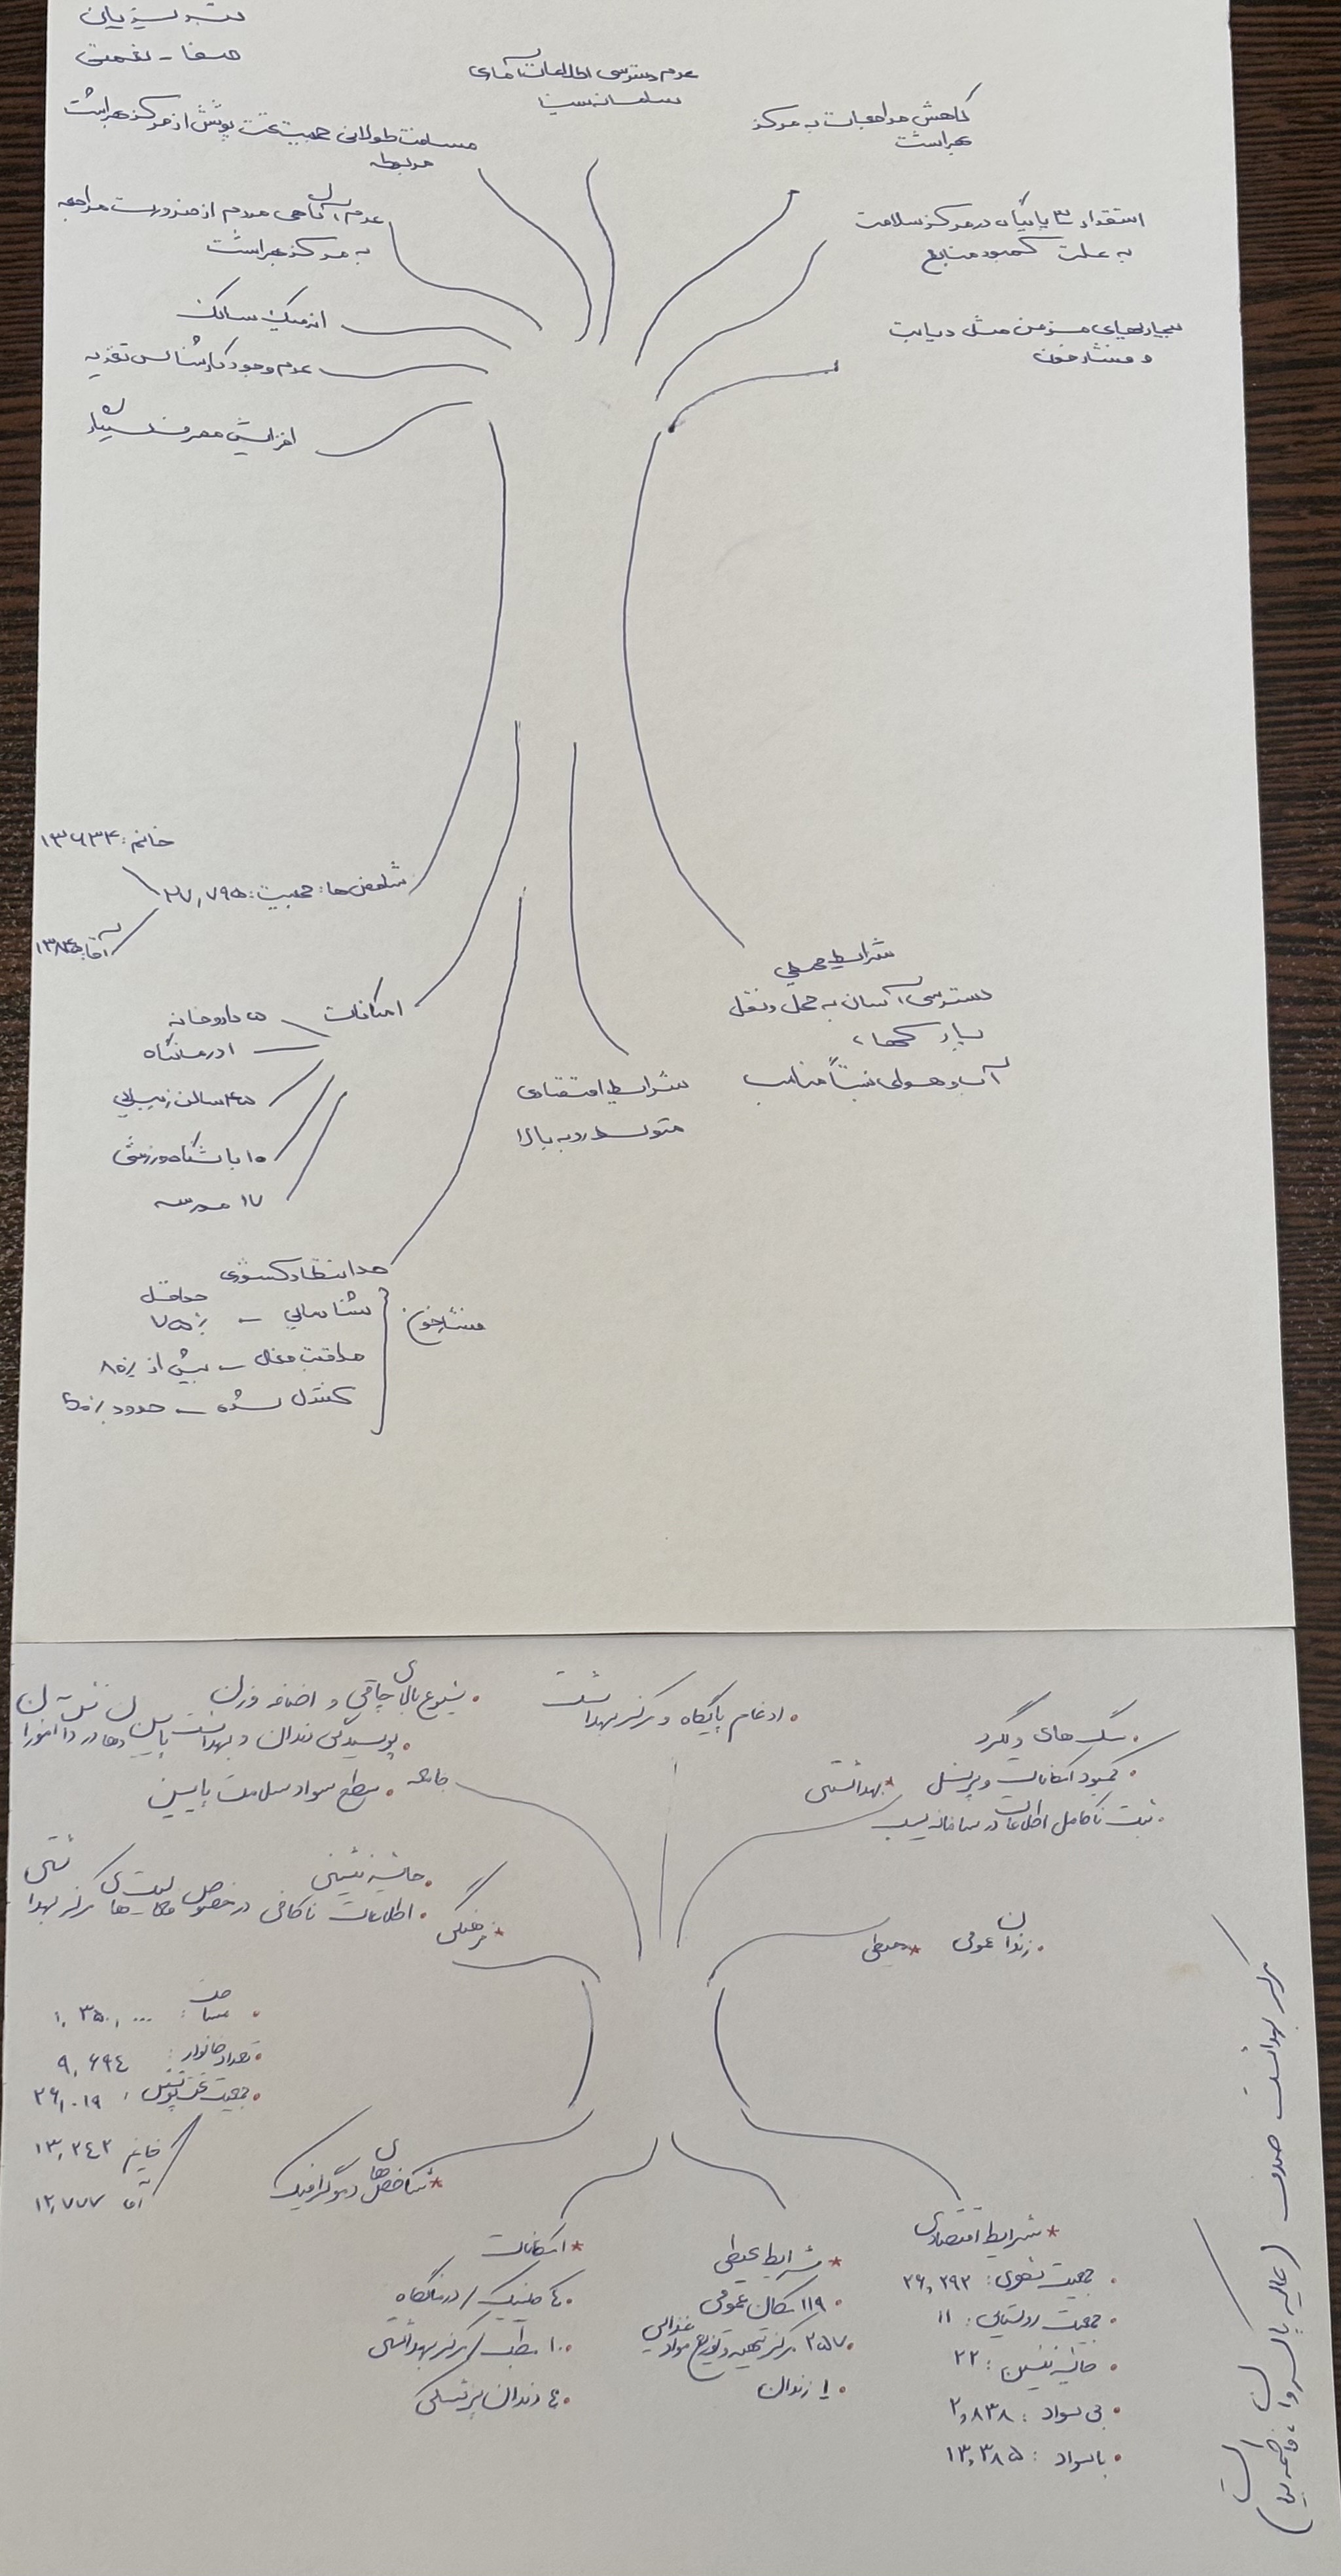 صفا - نعمتی
عدم دسترسی اطلاعات آماری
سامانه سینا
کاهش مراجعات به مرکز
بهداشت
مسافت طولانی جمعیت تحت پوشش از مرکز بهداشت
مربوطه
استقرار ۳ پایگاه در مرکز سلامت
به علت کمبود منابع
عدم آگاهی مردم از ضرورت مراجعه
به مرکز بهداشت
اندمیک سالک
بیماریهای مزمن مثل دیابت
و فشار خون
عدم وجود کارشناس تغذیه
افزایش مصرف سیگار
خانم: ۱۳۶۳۴
شاخص ها: جمعیت: ۲۷,۷۹۵
آقا:
شرایط محیطی
دسترسی آسان به حمل و نقل
پارک ها
آب و هوای نسبتاً مناسب
امکانات
۵ داروخانه
۱ درمانگاه
۴۵ سالن زیبایی
۱۰ باشگاه ورزشی
۱۷ مدرسه
شرایط اقتصادی
متوسط رو به بالا
حد انتظار کشوری
فشار خون
شناسایی - حداقل
۷۵٪
مراقبت فعال - بیش از ۸۰٪
کنترل شده - حدود ۵۰٪
• شیوع بالای چاقی و اضافه وزن
• ادغام پایگاه و مرکز بهداشت
• سگ های ولگرد
• پوسیدگی دندان و بهداشت پایین دهان در دانش آموزان
• کمبود امکانات و پرسنل * بهداشتی
جامعه • سطح سواد سلامت پایین
• ثبت ناکامل اطلاعات در سامانه سیب
• حاشیه نشینی
• اطلاعات ناکافی در خصوص فعالیت های مرکز بهداشتی
* فرهنگی
• زندان عمومی * محیطی
• مساحت: ۱,۳۵۰,۰۰۰
• تعداد خانوار: ۹,۶۹۴
• جمعیت تحت پوشش: ۲۶,۰۱۹
خانم ۱۳,۲۴۲
آقا ۱۲,۷۷۷
* شاخص های دموگرافیک
* امکانات
• ۴ کلینیک/درمانگاه
• ۱۰ مطب/مرکز بهداشتی
• ۴ دندان پزشکی
* شرایط محیطی
• ۱۱۹ مکان عمومی
• ۲۵۷ مرکز تهیه و توزیع مواد غذایی
• ۱ زندان
* شرایط اقتصادی
• جمعیت شهری: ۲۶,۲۹۲
• جمعیت روستایی: ۱۱
• حاشیه نشین: ۲۲
• بی سواد: ۲,۸۳۸
• باسواد: ۱۳,۳۸۵
مرکز بهداشت صدف